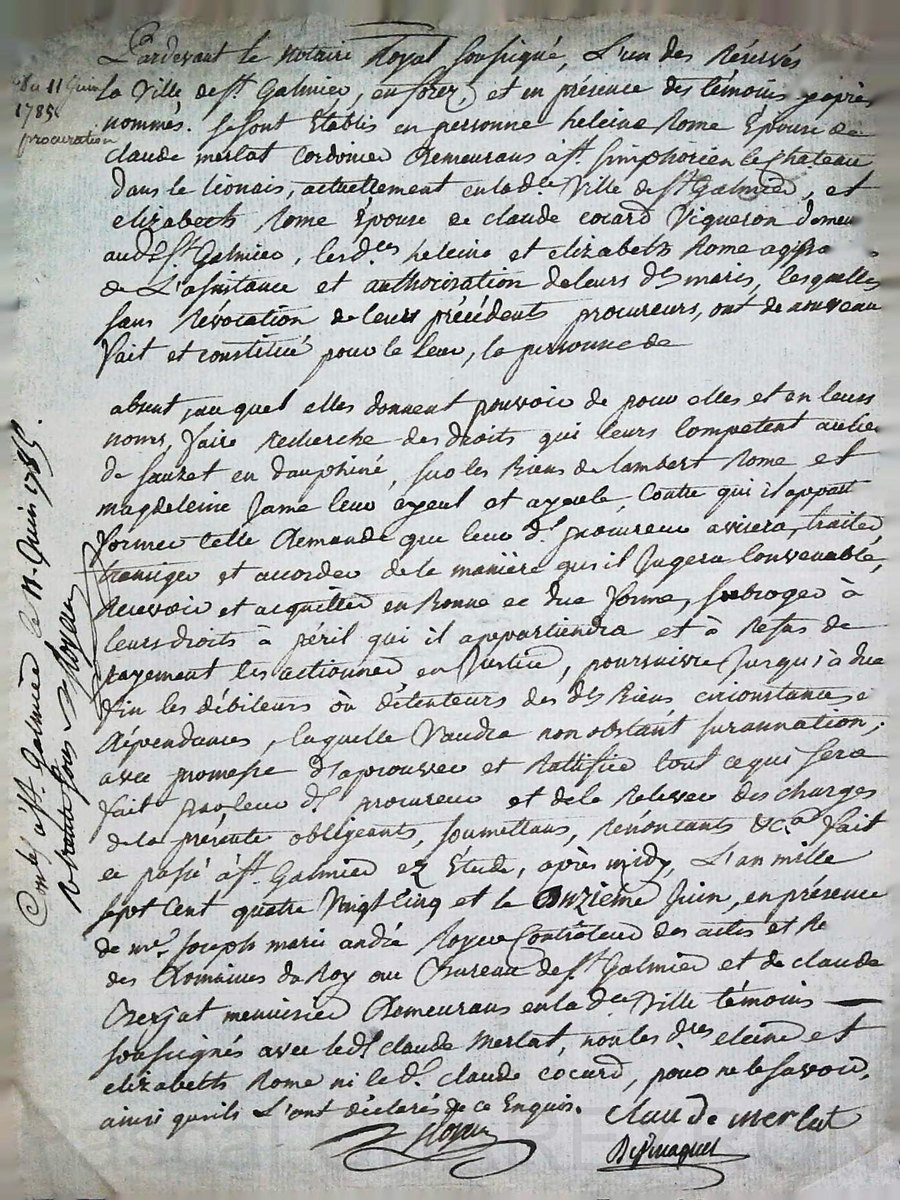 Pardevant le Notaire Royal soussigné, L'un des Réservés
la Ville de st. Galmier, en forez, et en présence des témoins ci après
nommés. se sont Etablis en personne heleine Rome Epouse de
claude merlat Cordonier Demeurans à st. simphorien le chateau
dans le lionais, actuellement en lad.te Ville de st. Galmier, et
elizabeth Rome Epouse de claude cocard Vigneron demeu
aud. st. Galmier, les d.tes heleine et elizabeth Rome agissa
de L'asistance et authorisation de leurs ds. maris, lesquelles
sans Révocation de leurs précédents procureurs, ont de nouveau
fait et constitué pour le leur, la personne de
absent, auquel elles donnent pouvoir de pour elles et en leurs
noms, faire recherche des droits qui leurs competent au lieu
de sauzet en dauphiné, sur les Biens de lambert Rome et
magdeleine Jame leur ayeul et ayeule, Contre qui il appart
former telle Demande que leur d. procureur avisera, traiter
transiger et accorder de la manière qu'il Jugera Convenable,
Recevoir et acquitter en Bonne et due forme, subroger à
leurs droits à péril qui il appartiendra et à Refus de
payement les actionner en Justice, poursuivre Jusqu'à due
fin les débiteurs où détenteurs des ds. Biens circonstances
dépendances, laquelle Vaudra nonobstant surannation,
avec promesse d'aprouver et Rattifier tout ce qui sera
fait par leur d. procureur et de le Relever des charges
de la présente obligeants, soumettans, Renoncants &c.a fait
et passé à st. Galmier ez Etude, après midy, L'an mille
sept Cent quatre Vingt Cinq et le Onzieme Juin, en présence
de me. Joseph marie andré Royer Controleur des actes et Re
des Domaines du Roy au Bureau de st. Galmier et de claude
menuisier Demeurans en lad.te Ville témoins
soussignés avec led. claude Merlat, non les d.tes eleine et
elizabeth Rome ni le d. claude cocard, pour ne le savoir,
ainsi qu'ils L'ont déclarés de ce Enquis.
claude merlat
Royer
du 11 Juin
1785
procuration
Con.lé à st. Galmier le 11. Juin 1785.
Royer